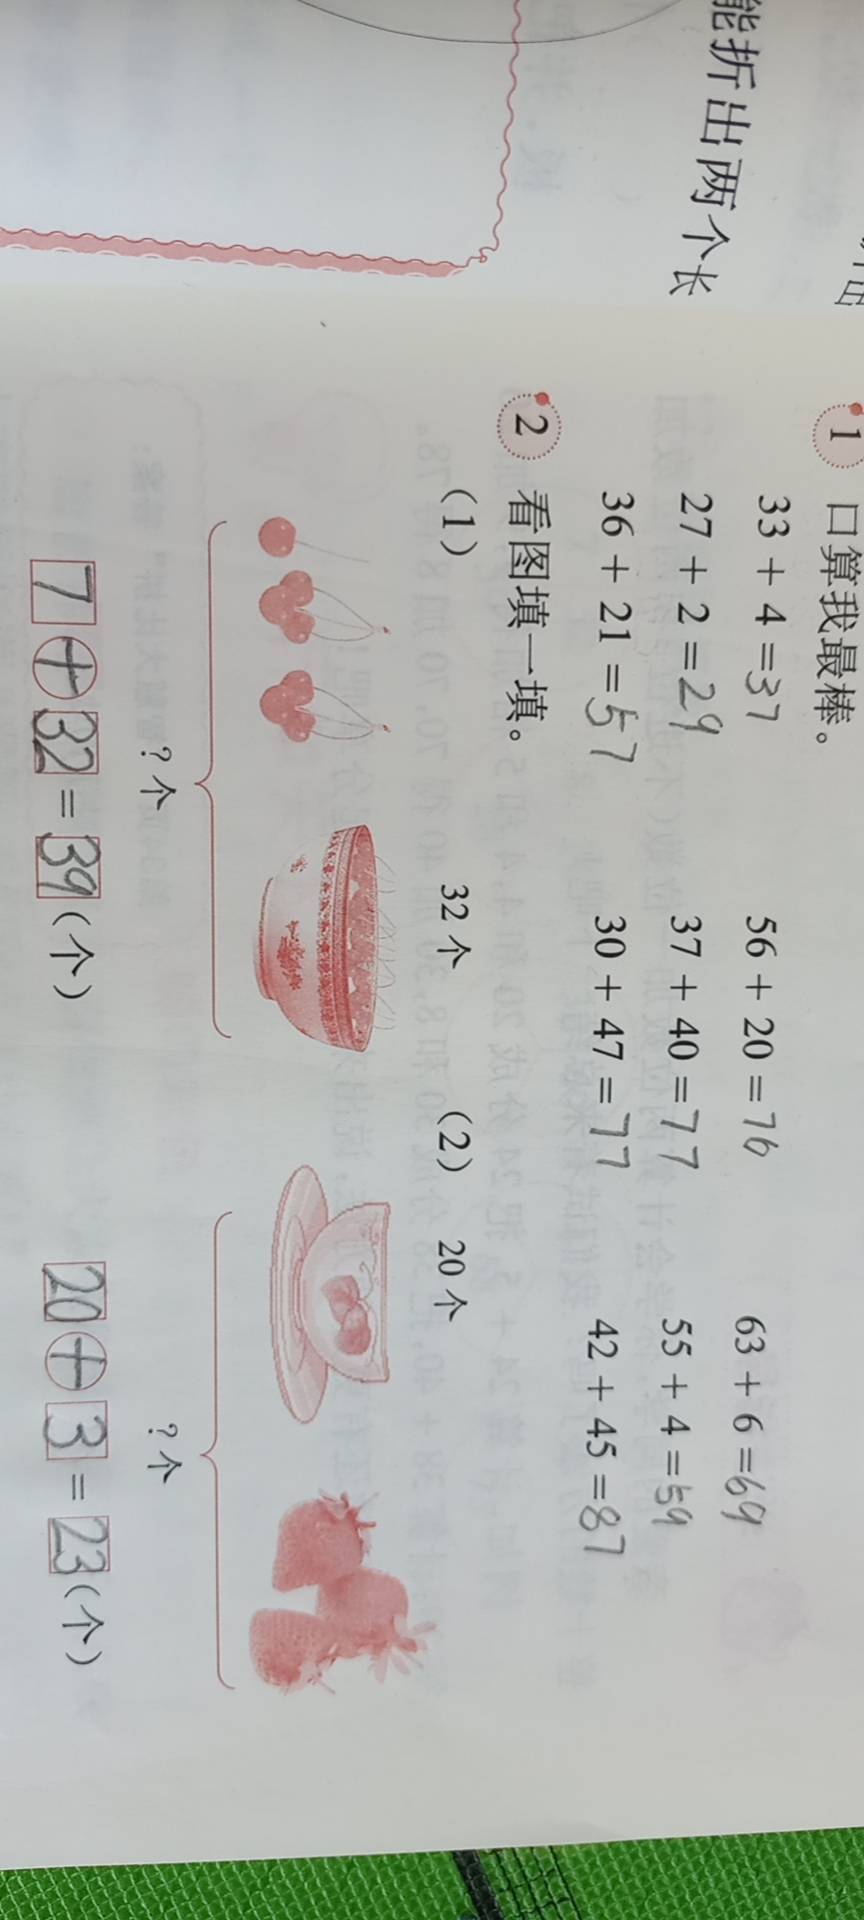 能折出两个长
1 口算我最棒。
33 + 4 = 37 56 + 20 = 76 63 + 6 = 69
27 + 2 = 29 37 + 40 = 77 55 + 4 = 59
36 + 21 = 57 30 + 47 = 77 42 + 45 = 87
2 看图填一填。
(1) 32个 (2) 20个
?个 ?个
7 + 32 = 39 (个) 20 + 3 = 23 (个)